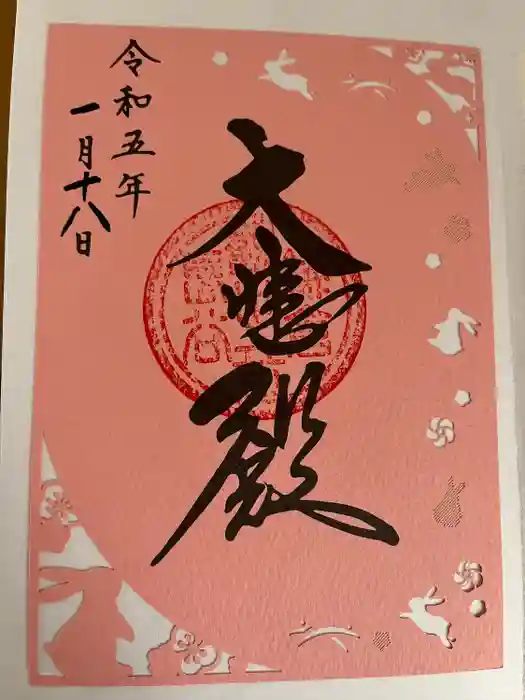 大悲殿
令和五年
一月十八日